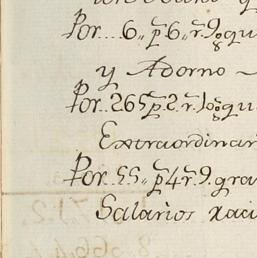 Por... 6,, p 6,, r. 9, g qu
y Adorno
Por.. 265 p. 2. r. 1 o g. qu
Extraordinari
Por... 55,, p 4 r. 9. gra
Salarios raci